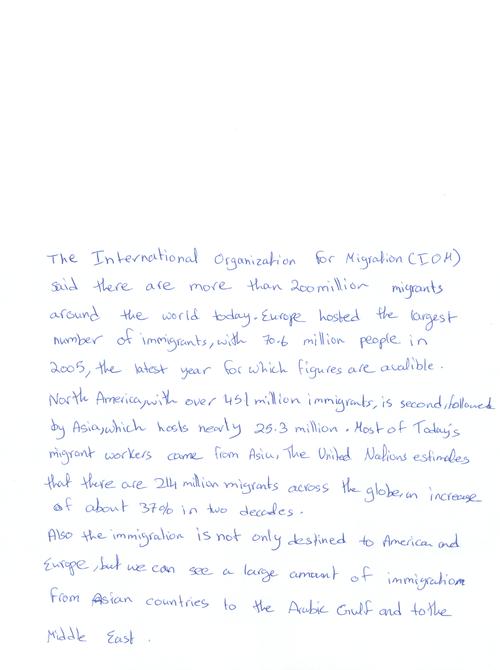 The International Organization for Migration (IOM)
said there are more than 200 million migrants
around the world today. Europe hosted the largest
number of immigrants, with 70.6 million people in
2005, the latest year for which figures are avalible.
North America, with over 451 million immigrants, is second, followed
by Asia, which hosts nearly 25.3 million. Most of Today's
migrant workers came from Asia, The United Nations estimates
that there are 214 million migrants across the globe, an increase
of about 37% in two decades.
Also the immigration is not only destined to American and
Europe, but we can see a large amount of immigration
from Asian countries to the Arabic Gulf and to the
Middle East.